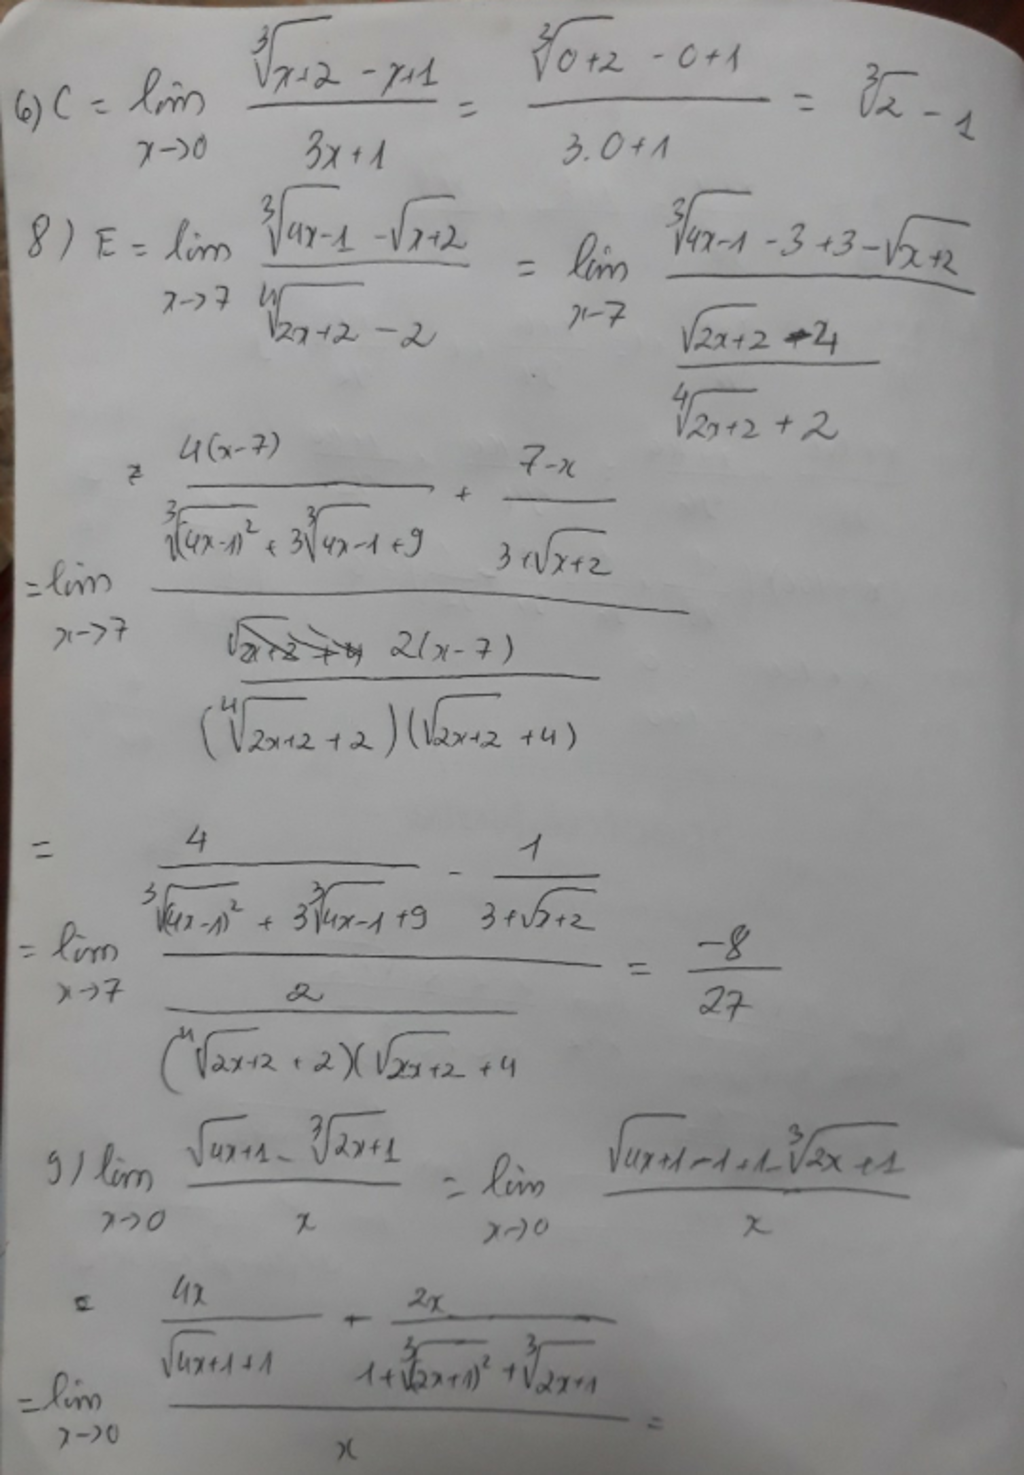 6) C = lim x→0 (∛(x+2) - x+1)/(3x+1) = (∛(0+2) - 0+1)/(3.0+1) = ∛2 - 1
8) E = lim x→7 (∛(4x-1) - √(x+2))/(∜(2x+2) - 2) = lim x-7 (∛(4x-1) - 3 + 3 - √(x+2))/((√(2x+2) - 4)/(∜(2x+2) + 2))
= lim x→7 (4(x-7)/(∛(4x-1)² + 3∛(4x-1) + 9) + (7-x)/(3+√(x+2)))/(2(x-7)/((∜(2x+2) + 2)(√(2x+2) + 4)))
=
= lim x→7 (4/(∛(4x-1)² + 3∛(4x-1) + 9) - 1/(3+√(x+2)))/(2/((∜(2x+2) + 2)(√(2x+2) + 4) = -8/27
9) lim x→0 (√(4x+1) - ∛(2x+1))/x = lim x→0 (√(4x+1) - 1 + 1 - ∛(2x+1))/x
= lim x→0 (4x/(√(4x+1) + 1) + 2x/(1 + ∛(2x+1)² + ∛(2x+1)))/x =